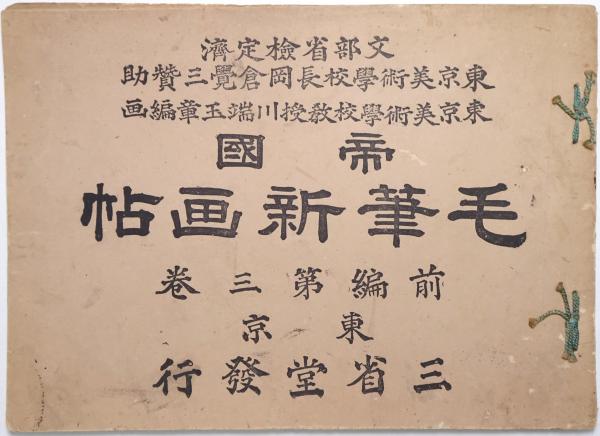 文部省檢定濟
東京美術學校長岡倉覺三贊助
東京美術學校教授川端玉章編画
帝國
毛筆新画帖
前編第三卷
東京
三省堂發行